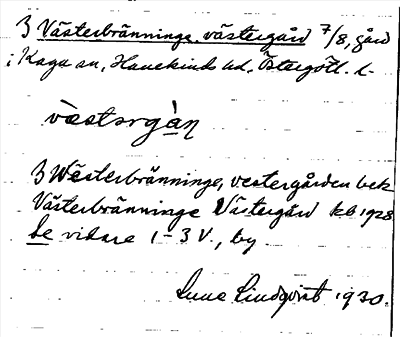 3 Västerbränninge, västergård 7/8, gård
i Kaga sn, Hanekinds hd, Östergötl. l.
västərgạ̀ṇ
3 Wästerbränninge, vestergården bek
Västerbränninge Västergård kb 1928
Se vidare 1-3 V., by
Sune Lindqvist 1930.